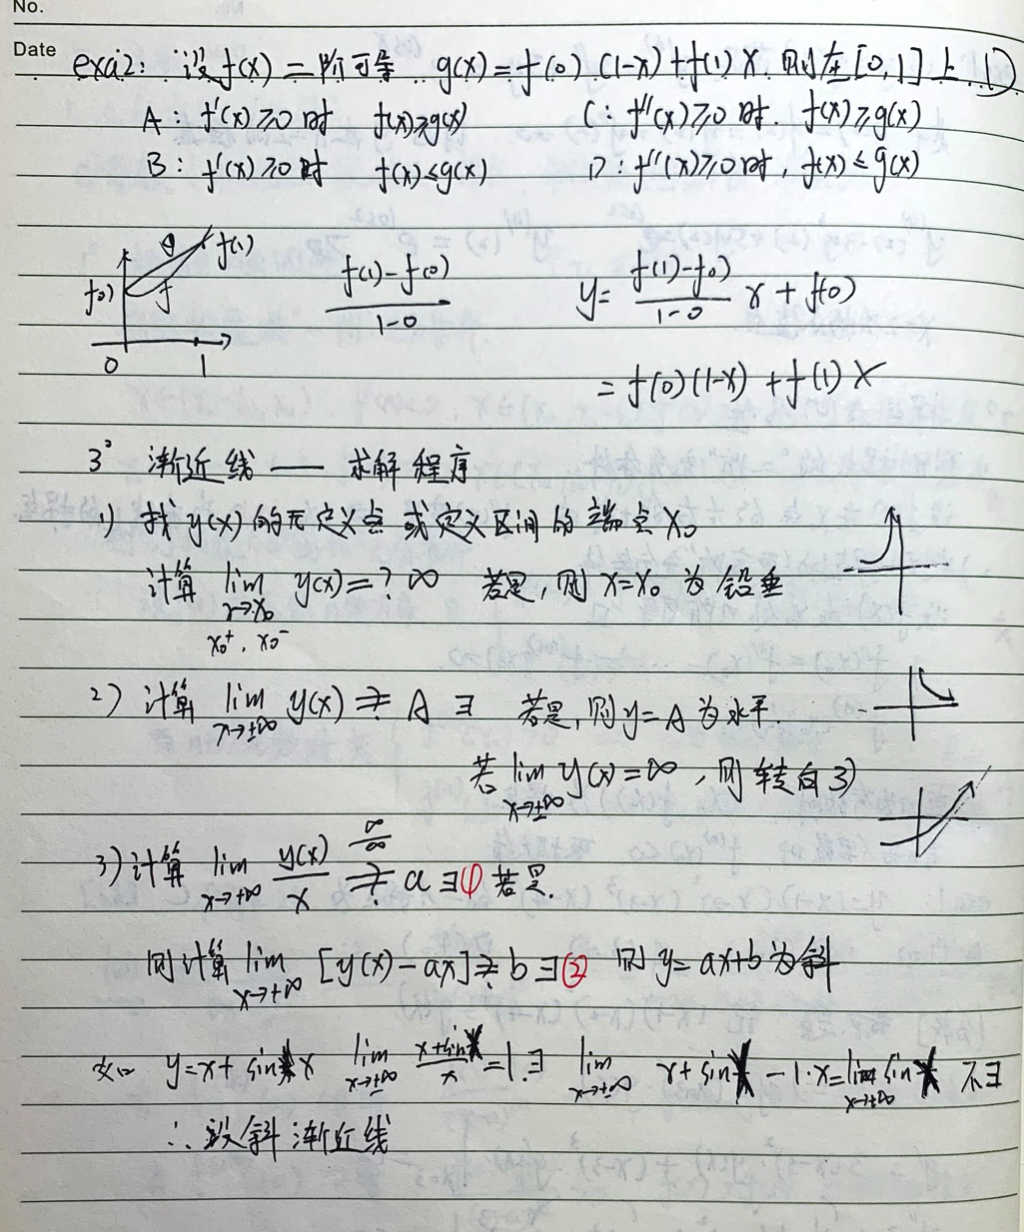 No.
Date
exa2: 设f(x)二阶可导 g(x)=f(0)(1-x)+f(1)x. 则在[0,1]上( D )
A: f'(x)≥0时 f(x)≥g(x) C: f''(x)≥0时. f(x)≥g(x)
B: f'(x)≥0时 f(x)≤g(x) D: f''(x)≥0时, f(x)≤g(x)
g f(1)
f(0) f
0 1
f(1)-f(0) / 1-0
y= f(1)-f(0) / 1-0 x + f(0)
= f(0)(1-x) + f(1)x
3° 渐近线 —— 求解程序
1) 找y(x)的无定义点或定义区间的端点x₀
计算 lim x→x₀ y(x)=?∞ 若是,则x=x₀为铅垂
x₀⁺, x₀⁻
2) 计算 lim x→±∞ y(x) ≟ A ∃ 若是,则y=A为水平.
若 lim x→±∞ y(x)=∞, 则转向3)
3) 计算 lim x→+∞ y(x)/x ∞/∞ ≟ a ∃① 若是.
则计算 lim x→+∞ [y(x)-ax] ≟ b ∃② 则y=ax+b为斜
如 y=x+sinx lim x→±∞ x+sinx/x =1.∃ lim x→±∞ x+sinx -1·x=lim x→±∞ sinx 不∃
∴ 没斜渐近线